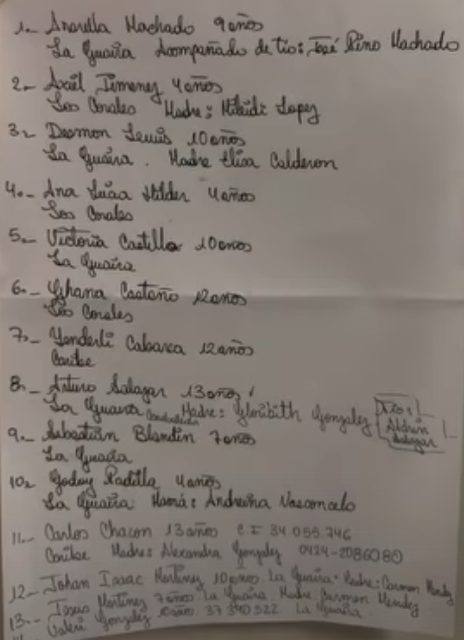 1.- Anarella Machado 9 años
La Guaira Acompañado de tio: José Pino Machado
2.- Axel Jimenez 4 años
Los Corales Madre: Lopez
3.- Lewis 10 años
La Guaira. Madre Elisa Calderon
4.- Ana Hilder 4 años
Los Corales
5.- Victoria Castillo 10 años
La Guaira
6.- Castaño 12 años
Los Corales
7.- Yenderli Cabarca 12 años
Caribe
8.- Arturo Salazar 13 años
La Guaira Madre: Gonzalez Tio: Aldrin Salazar
9.- Sebastián Blandin 7 años
La Guaira
10.- Godoy Padilla 4 años
La Guaira Mamá: Andreina Vasconcelo
11.- Carlos Chacon 13 años C.I 34.055.746
Caribe Madre: Alexandra Gonzalez 0424-2086080
12.- Johan Isaac Martinez 10 años La Guaira. Madre: Carmen Mendez
13.- Jesus Martinez 7 años La Guaira Madre Carmen Mendez
Gonzalez 10 años 37 340.922 La Guaira